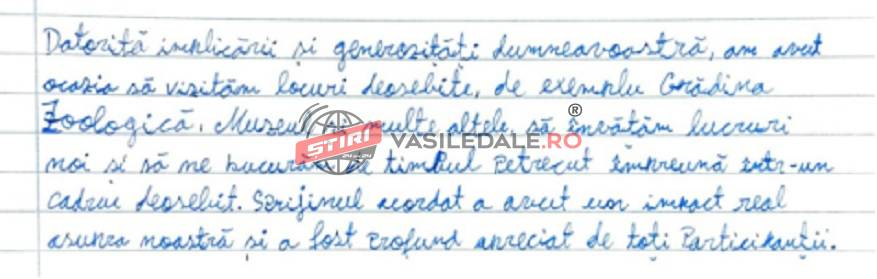 Datorită implicării și generozității dumneavoastră, am avut
ocazia să vizităm locuri deosebite, de exemplu Grădina
Zoologică, Muzeul și multe altele, să învătăm lucruri
noi si să ne bucurăm de timpul petrecut împreună într-un
cadru deosebit. Sprijinul acordat a avut un impact real
asupra noastră și a fost profund apreciat de toți Participanții.
STIRI
24 din 24
VASILEDALE.RO
®